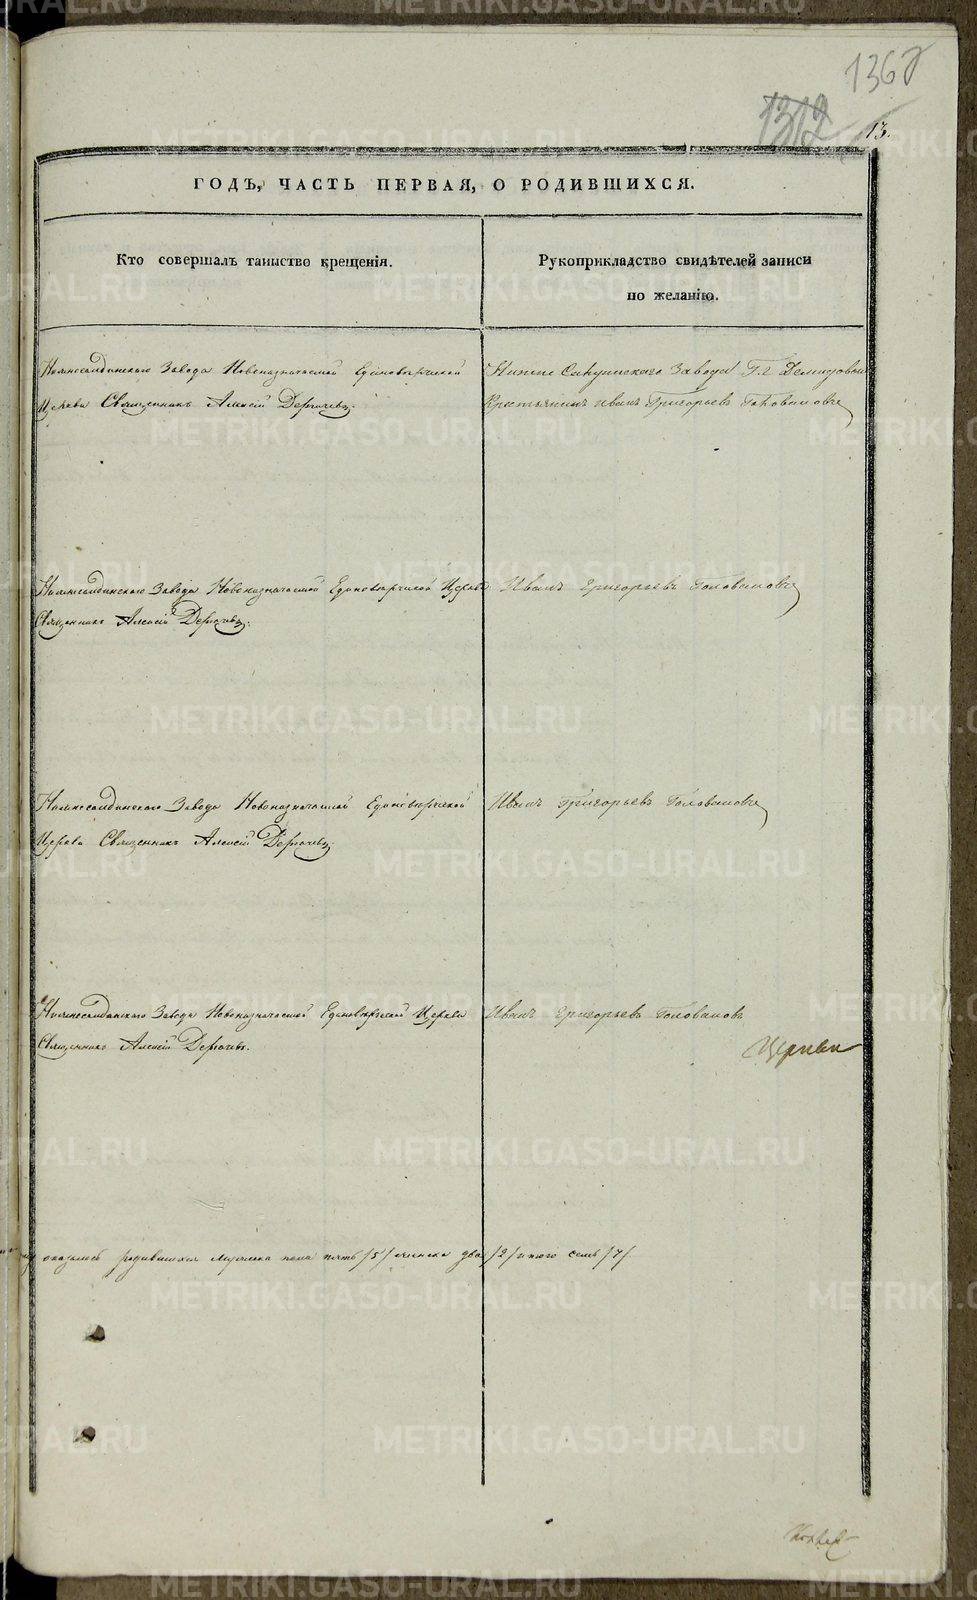 1367
1312
13.
ГОДЪ, ЧАСТЬ ПЕРВАЯ, О РОДИВШИХСЯ.
Кто совершалъ таинство крещенія.
Рукоприкладство свидѣтелей записи
по желанію.
Нижнесалдинскаго Завода Новоназначаемой Единоверческой
Церкви Священникъ Алексій
Завода Г. г Демидовыхъ
Крестьянинъ Иванъ Григорьевъ Головановъ
Нижнесалдинскаго Завода Новоназначаемой Единоверческой Церкви
Священникъ Алексій
Иванъ Григорьевъ Головановъ
Нижнесалдинскаго Завода Новоназначаемой Единоверческой
Церкви Священникъ Алексій
Иванъ Григорьевъ Головановъ
Нижнесалдинскаго Завода Новоназначаемой Единоверческой Церкви
Священникъ Алексій
Иванъ Григорьевъ Головановъ
Церкви
оказалось родившихся мужеска пола пять /5/ женска два /2/ итого семь /7/
METRIKI.GASO-URAL.RU